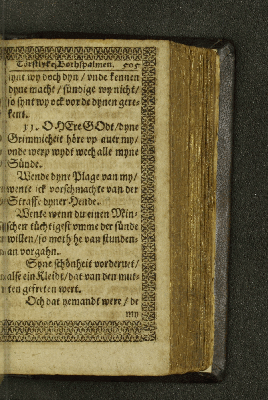 Törstlyke Bothpsalmen. 505
synt wy doch dyn / vnde kennen
dyne macht / sündige wy nicht /
so synt wy ock vor de dynen gere-
kent.
11. O HEre GOdt / dyne
Grimmicheit höre vp auer my /
vnde werp wydt wech alle myne
Sünde.
Wende dyne Plage van my /
wente ick vorschmachte van der
Straffe dyner Hende.
Wente wenn du einen Min-
schen tüchtigest vmme der sünde
willen / so moth he van stunden-
an vorgahn.
Syne schönheit vorderuet /
alse ein Kleidt / dat van den mut-
ten gefreten wert.
Och dat yemandt were / de
my